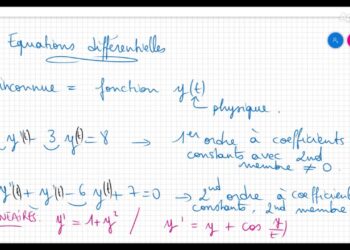 Equations différentielles
inconnue = fonction y(t)
physique.
y'(t) + 3 y(t) = 8 → 1er ordre à coefficients
constants avec 2nd
membre ≠ 0.
y''(t) + y'(t) - 6 y(t) + 7 = 0 → 2nd ordre à coefficients
constants, 2nd membre
NÉAIRES y' = 1 + y² / y' = y + cos